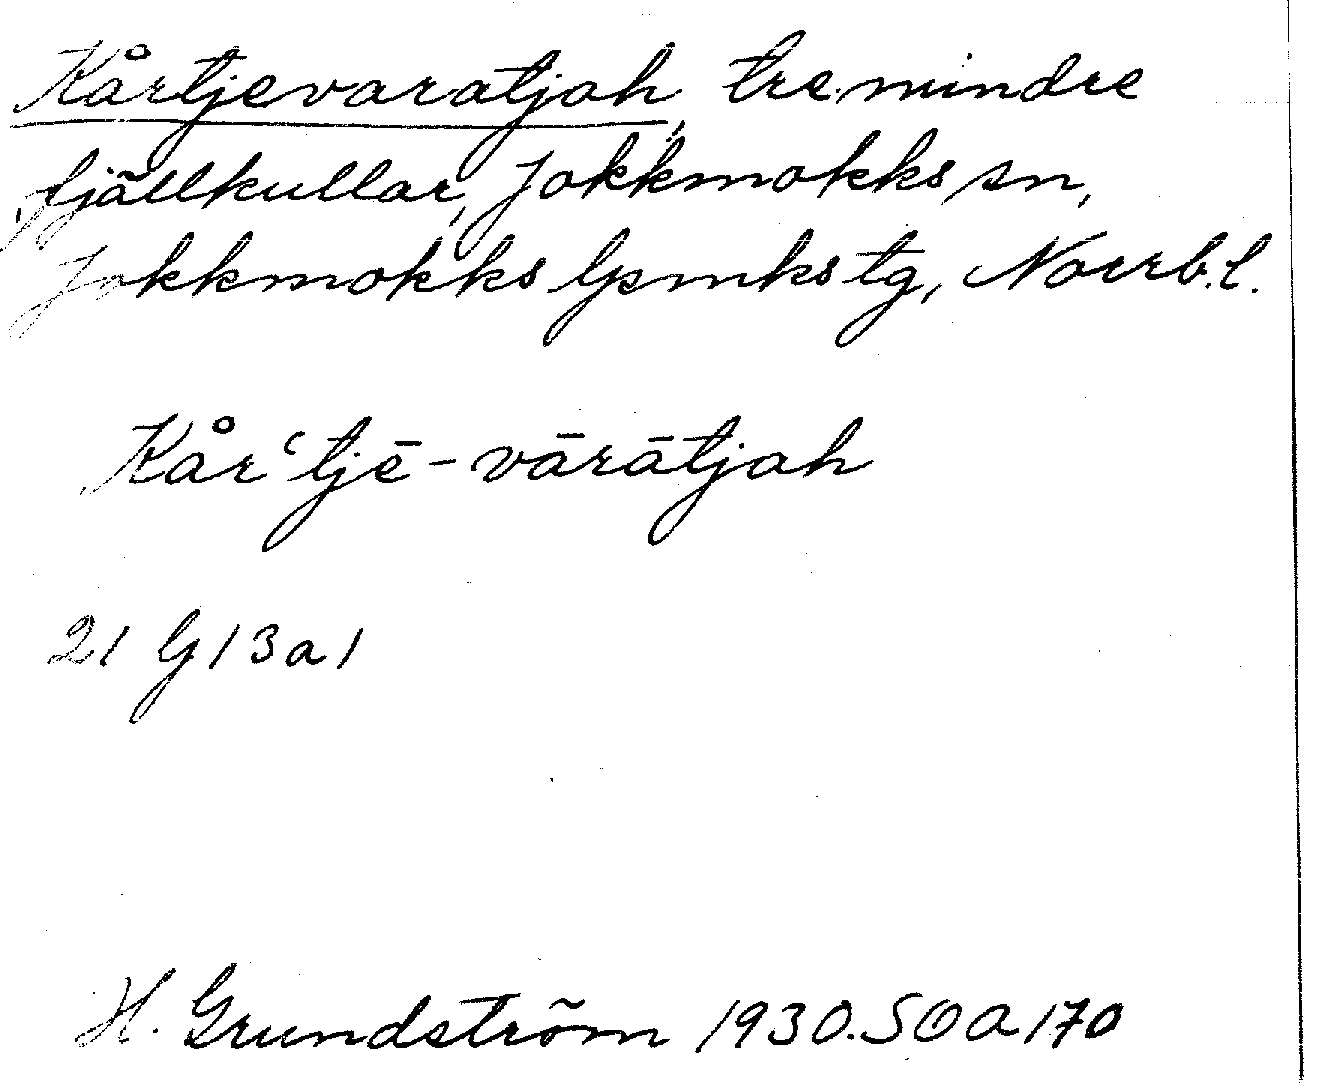 Kårtjevaratjah, tre mindre
fjällkullar, Jokkmokks sn,
Jokkmokks lpmks tg, Norrb. l.
Kår‘tjē-vārātjah
21 G 1 3 a 1
H. Grundström 1930. SOA 170